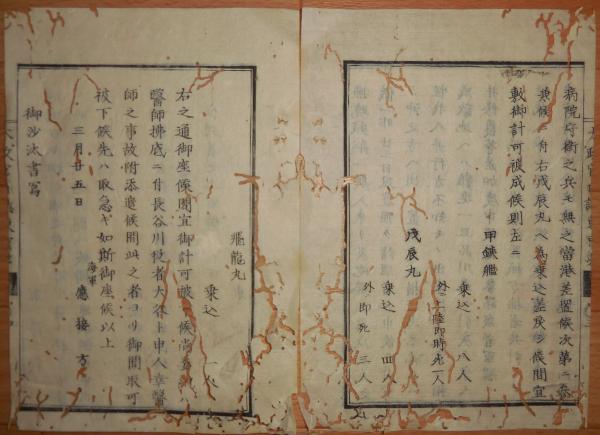 病院守衛之兵モ無之當港差置候次第ニ参
兼候ニ付右戊辰丸ヘ為乗込差戻シ候間宜
敷御計可被成候則左ニ
甲鉄艦
乗込 八人
外ニ上陸即時死一人
戊辰丸
乗込 四人
外即死 三人
飛龍丸
乗込 一人
右之通御座候間宜御計可被 候尚
醫師拂底ニ付長谷川役者大谷上申人幸醫
師之事故附添遣候間此之者ヨリ御聞取可
被下候先ハ取急キ如斯御座候以上
三月廿五日
海軍
應接方
御沙汰書寫